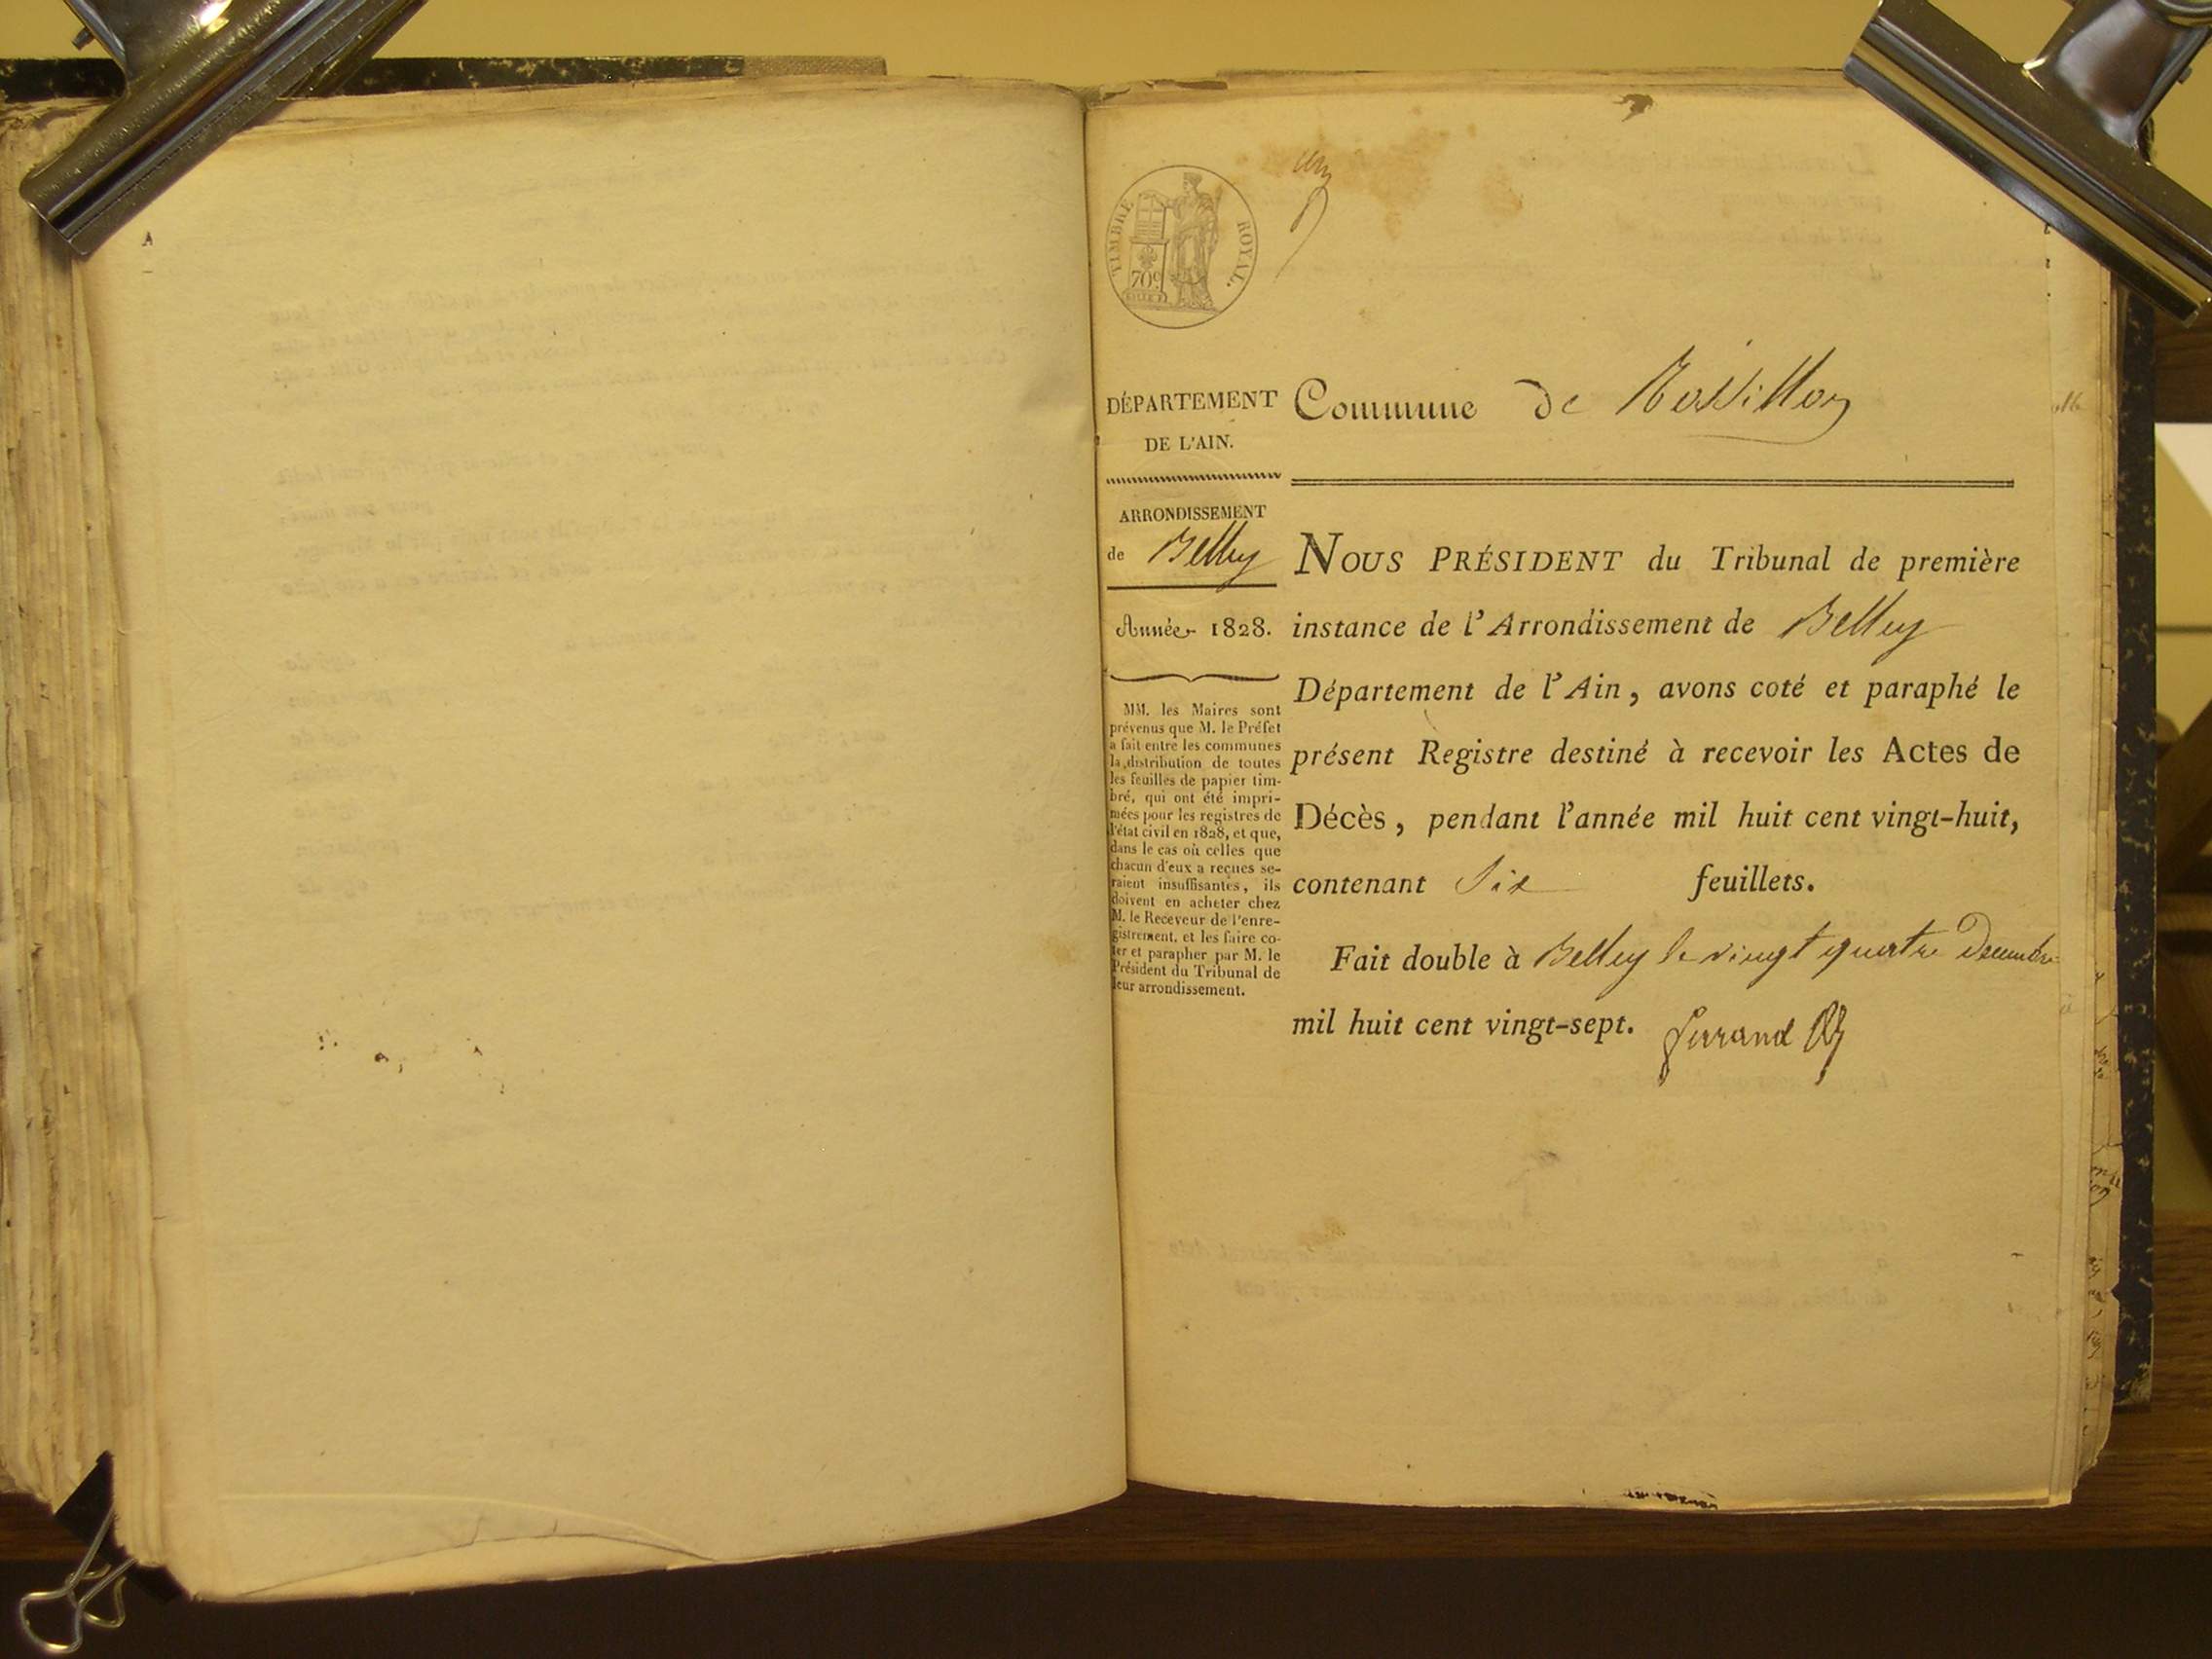 un
TIMBRE ROYAL.
70c
DÉPARTEMENT
DE L'AIN.
ARRONDISSEMENT
de Belley
Année 1828.
MM. les Maires sont
prévenus que M. le Préfet
a fait entre les communes
la distribution de toutes
les feuilles de papier tim-
bré, qui ont été impri-
mées pour les registres de
l'état civil en 1828, et que,
dans le cas où celles que
chacun d'eux a reçues se-
raient insuffisantes, ils
doivent en acheter chez
M. le Receveur de l'enre-
gistrement, et les faire co-
ter et parapher par M. le
Président du Tribunal de
leur arrondissement.
Commune de Rossillon
NOUS PRÉSIDENT du Tribunal de première
instance de l'Arrondissement de Belley
Département de l'Ain, avons coté et paraphé le
présent Registre destiné à recevoir les Actes de
Décès, pendant l'année mil huit cent vingt-huit,
contenant Six feuillets.
Fait double à Belley le vingt quatre Decembre
mil huit cent vingt-sept. Ferrand